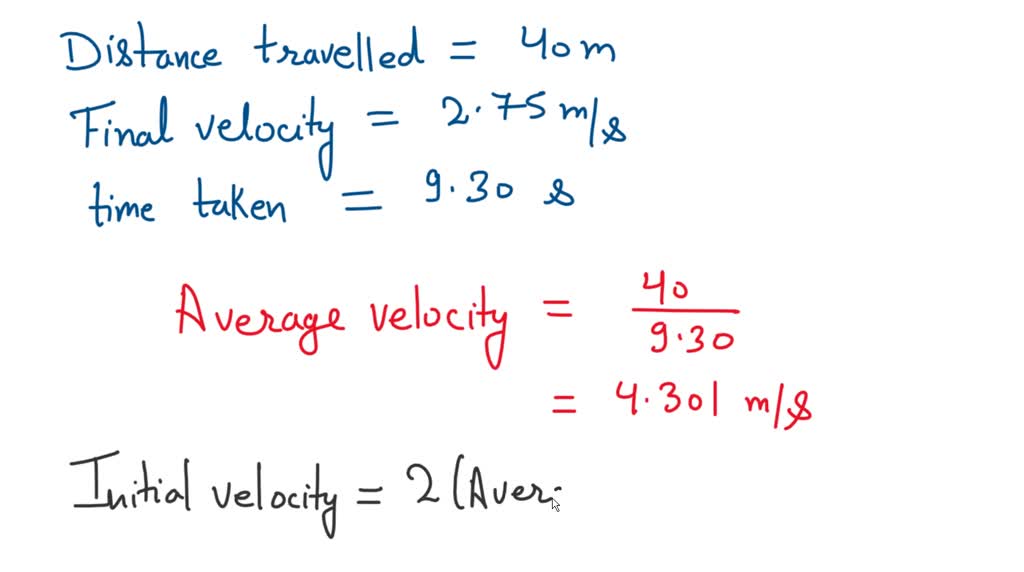 Distance travelled = 40 m
Final velocity = 2.75 m/s
time taken = 9.30 s
Average velocity = 40/9.30
= 4.301 m/s
Initial velocity = 2 (Aver